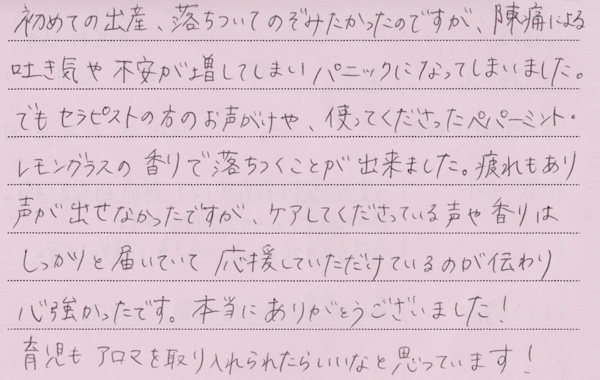 初めての出産、落ちついてのぞみたかったのですが、陣痛による
吐き気や不安が増してしまいパニックになってしまいました。
でもセラピストの方のお声がけや、使ってくださったペパーミント・
レモングラスの香りで落ちつくことが出来ました。疲れもあり
声が出せなかったですが、ケアしてくださっている声や香りは
しっかりと届いていて応援していただけているのが伝わり
心強かったです。本当にありがとうございました！
育児もアロマを取り入れられたらいいなと思っています！